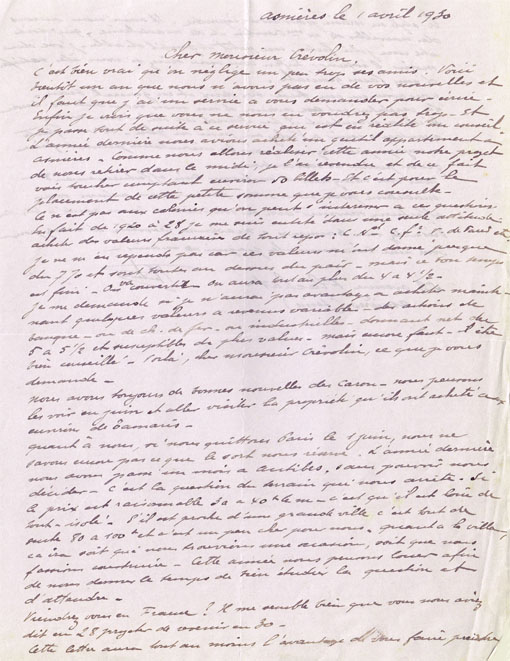 Asnières le 1 avril 1930
Cher Monsieur Crévolin,
C'est bien vrai qu'on néglige un peu trop ses amis. Voici
bientôt un an que nous n'avons pas eu de vos nouvelles et
il faut que j'ai un service a vous demander pour écrire.
Enfin je crois que vous ne nous en voudrez pas trop. Et
je passe tout de suite à ce service qui est en réalité un conseil.
L'année dernière nous avions acheté un gentil appartement a
Asnières. Comme nous allons réaliser cette année notre projet
de nous retirer dans le midi, je l'ai revendu et de ce fait
vais toucher comptant environ 50 billets. Et c'est pour le
placement de cette petite somme que je vous consulte.
Ce n'est pas aux colonies qu'on peut s'intéresser a ces questions.
En fait de 1920 à 28 je me suis entêté dans une seule attitude
achat des valeurs françaises de tout repos:
je ne m'en repends pas car ces valeurs m'ont donné presque
du 7% et sont toutes au dessus du pair - mais ce bon temps
est fini. On va convertir on aura tout au plus du 4 a 4 1/2 -
je me demande si je n'aurai pas avantage a acheter mainte-
nant quelques valeurs a revenus variable - des actions de
banque - ou de ch. de fer - ou industrielles - donnant net du
5 a 5 1/2 et susceptibles de plus values - mais encore faut-il être
bien conseillé - Voilà, cher monsieur Crévolin, ce que je vous
demande -
nous avons toujours de bonnes nouvelles des Caron - nous pensons
les voir en juin et aller visiter la propriété qu'ils ont acheté aux
environ de Tamaris -
quant à nous, si nous quittons Paris le 1 juin, nous ne
savons encore pas ce que le sort nous réserve. L'année dernière
nous avons passé un mois a Antibes, sans pouvoir nous
décider - C'est la question du terrain qui nous arrête. Si
le prix est raisonnable 30 a 40 le m - c'est qu'il est loin de
tout - isolé - S'il est proche d'une grande ville c'est tout de
suite 80 a 100 et c'est un peu cher pour nous - quant a la villa,
ca ira soit que nous trouvions une occasion, soit que nous
fassions construire - Cette année nous pensons louer afin
de nous donner le temps de bien étudier la question et
d'attendre -
Viendrez vous en France? Il me semble bien que vous nous aviez
dit en 28 projeter de venir en 30 -
Cette lettre aura tout au moins l'avantage de vous faire prendre